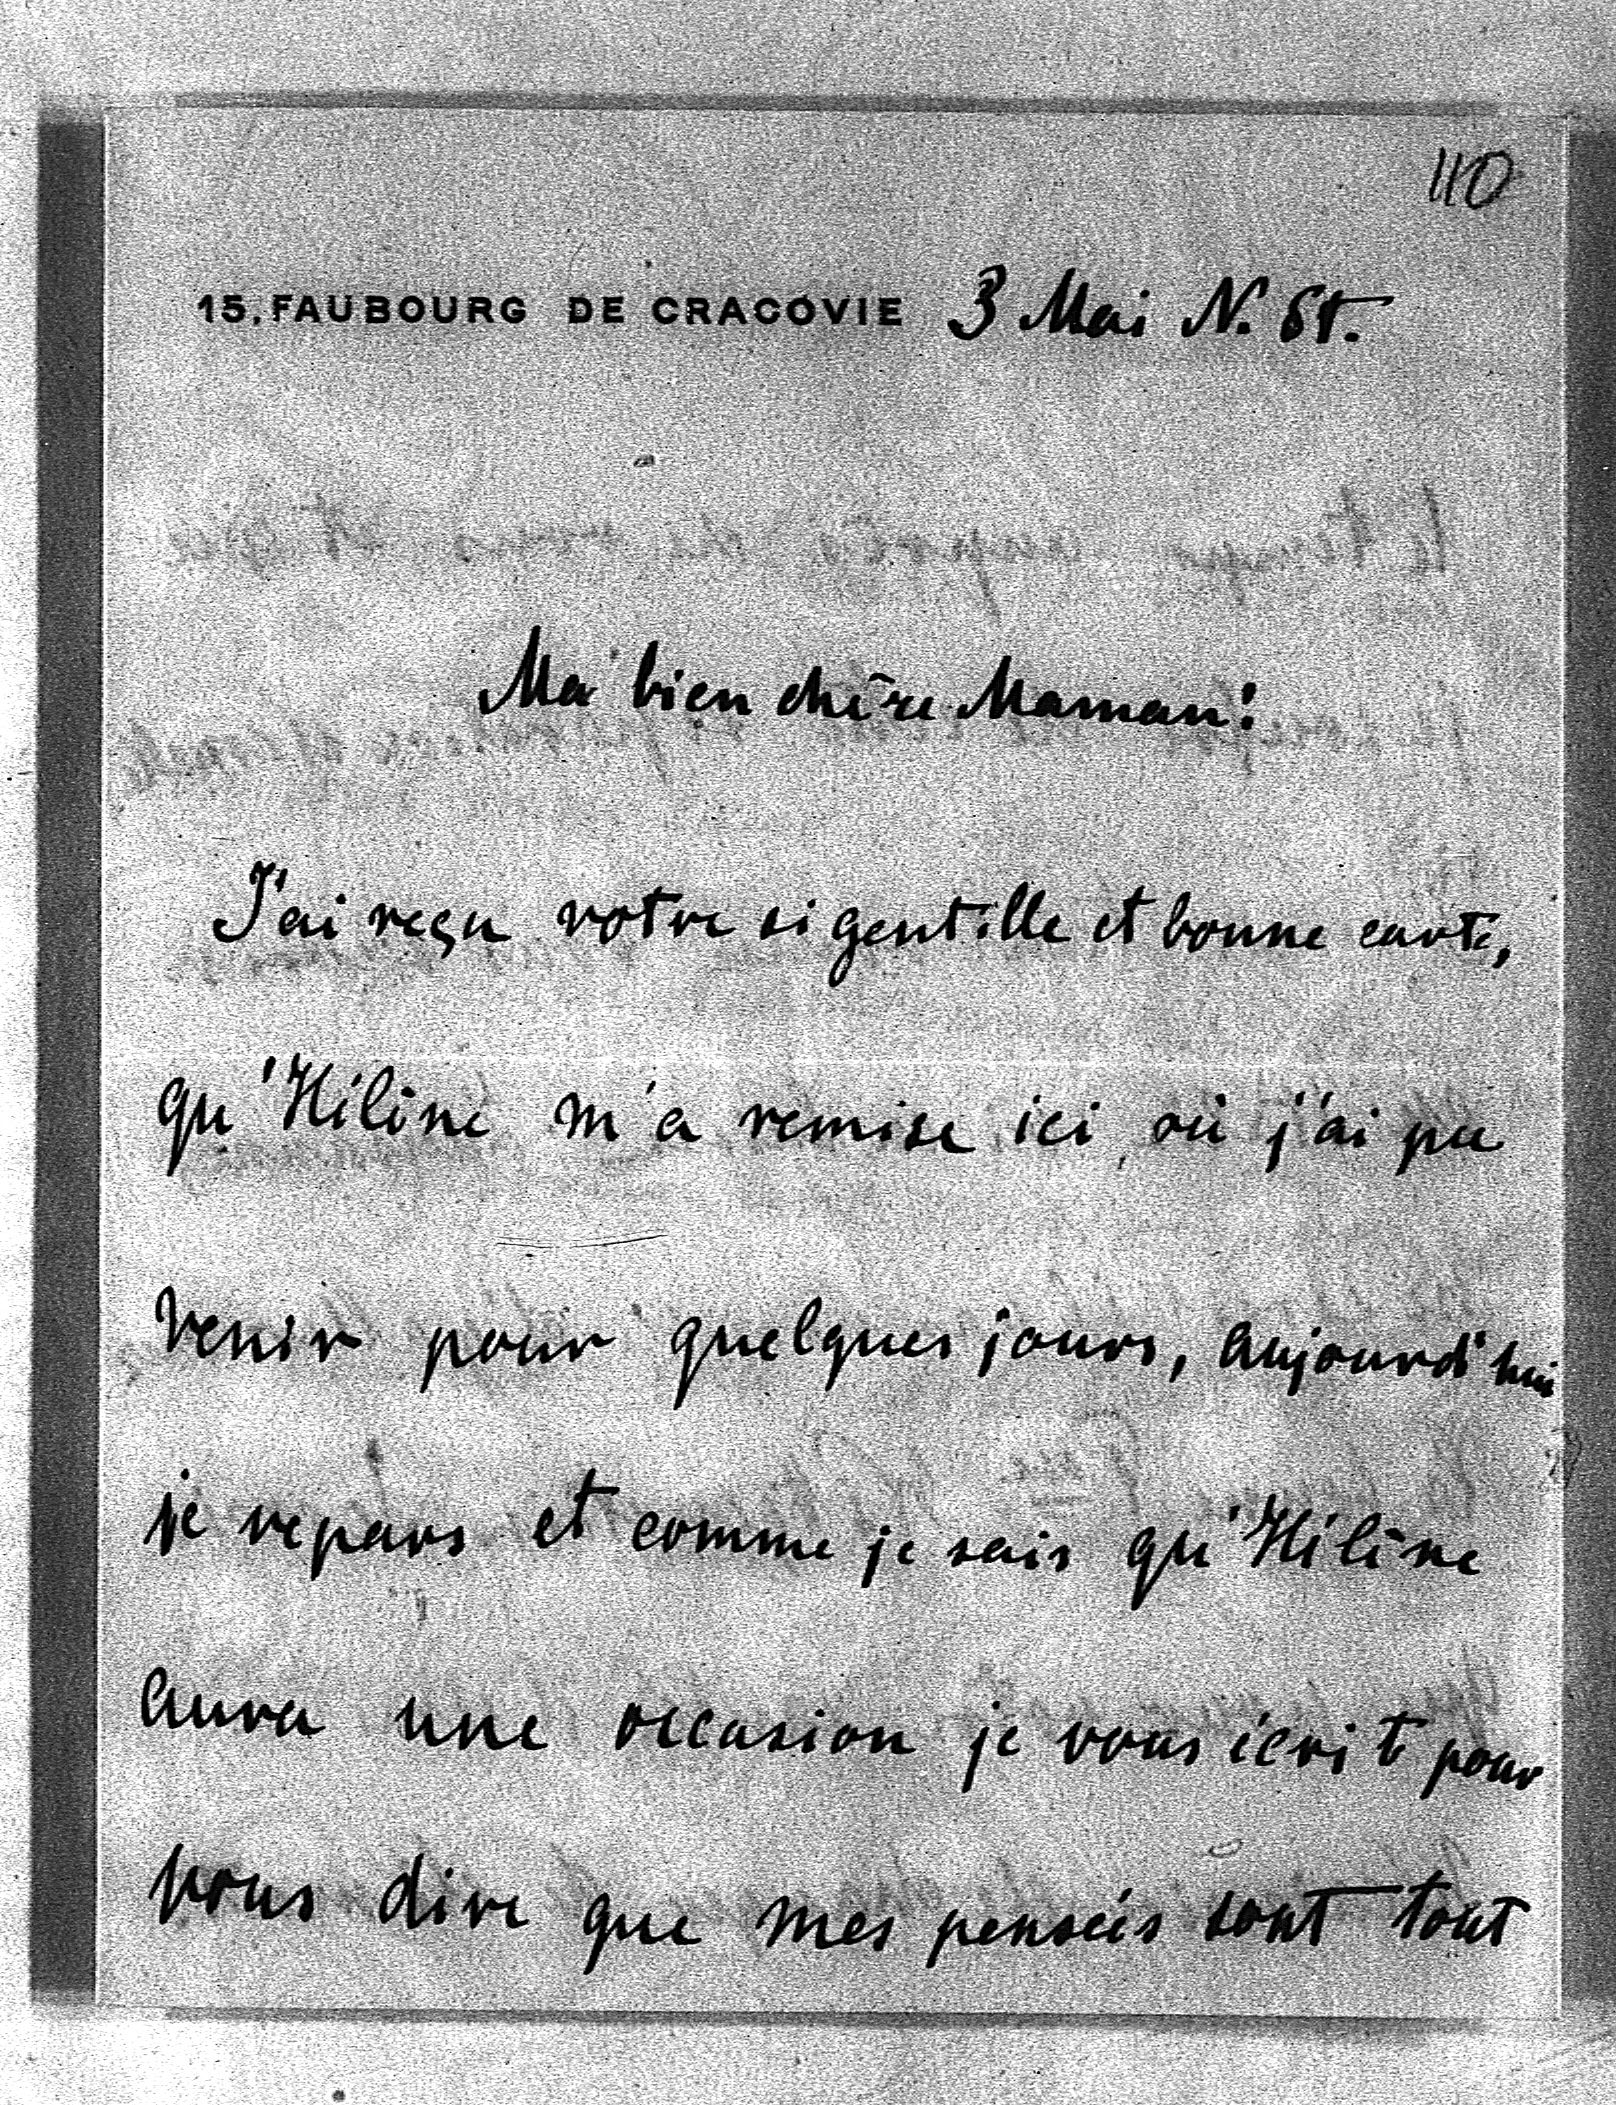 110
15, FAUBOURG DE CRACOVIE 3 Mai N. St.
Ma bien chère Maman!
J'ai reçu votre si gentille et bonne carte,
qu'Hélène m'a remise ici, où j'ai pu
venir pour quelques jours, aujourd'hui
je repars et comme je sais qu'Hélène
aura une occasion je vous écrit pour
vous dire que mes pensées sont tout